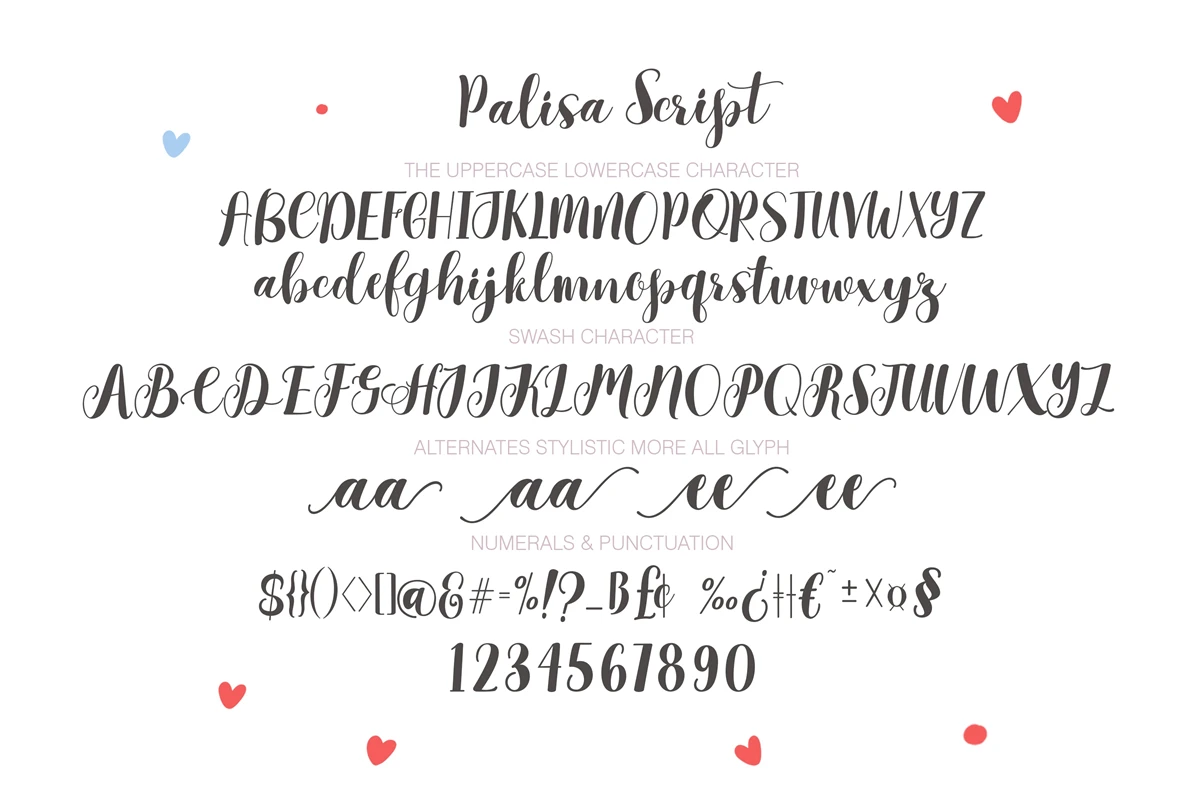 Palisa Script
THE UPPERCASE LOWERCASE CHARACTER
ABCDEFGHIJKLMNOPQRSTUVWXYZ
abcdefghijklmnopqrstuvwxyz
SWASH CHARACTER
ABCDEFGHIJKLMNOPQRSTUVWXYZ
ALTERNATES STYLISTIC MORE ALL GLYPH
aa aa ee ee
NUMERALS & PUNCTUATION
${}()<>[]@&#=%!?_B£¢ ‰¿‡€˜±X¤§
1234567890